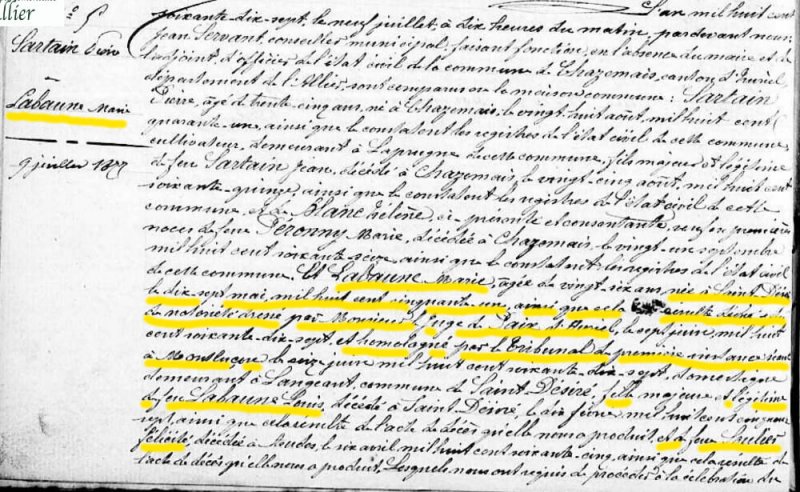 llier
n° 5
Sartain Pierre
Labaune Marie
9 juillet 1877
L'an mil huit cent
soixante dix-sept, le neuf juillet, à dix heures du matin, pardevant nous
Jean Servant, conseiller municipal, faisant fonction, en l'absence du maire et de
l'adjoint, d'officier de l'état civil de la commune de Chazemais, canton d'Huriel
département de l'Allier, sont comparus en la maison commune : Sartain
Pierre, âgé de trente cinq ans, né à Chazemais, le vingt huit août, mil huit cent
quarante un, ainsi que le constatent les registres de l'état civil de cette commune,
cultivateur, demeurant à Laprugne de cette commune, fils majeur et légitime
de feu Sartain Jean, décédé à Chazemais, le vingt-cinq août, mil huit cent
soixante-quinze, ainsi que le constatent les registres de l'état civil de cette
commune, et de Blanc Hélène, ici présente et consentante, veuf en premières
noces de feue Péronny Marie, décédée à Chazemais, le vingt un septembre
mil huit cent soixante seize, ainsi que le constatent les registres de l'état civil
de cette commune. Et Labaune Marie, âgée de vingt six ans, née à Saint Désiré
le dix sept mai, mil huit cent cinquante un, ainsi que cela résulte
de notoriété dressé par Monsieur le Juge de Paix d'Huriel, le sept juin, mil huit
cent soixante-dix-sept, et homologué par le Tribunal de première instance séant
à Montluçon, le onze juin mil huit cent soixante dix-sept, domestique
demeurant à Langeant, commune de Saint Désiré, fille majeure et légitime
de feu Labaune Louis, décédé à Saint Désiré, le six mil huit cent cinquante
sept, ainsi que cela résulte de l'acte de décès qu'elle nous a produit, et de feue
félicité, décédée à le six avril mil huit cent soixante-cinq, ainsi que cela résulte de
l'acte de décès qu'elle nous a produit. Lesquels nous ont requis de procéder à la célébration du